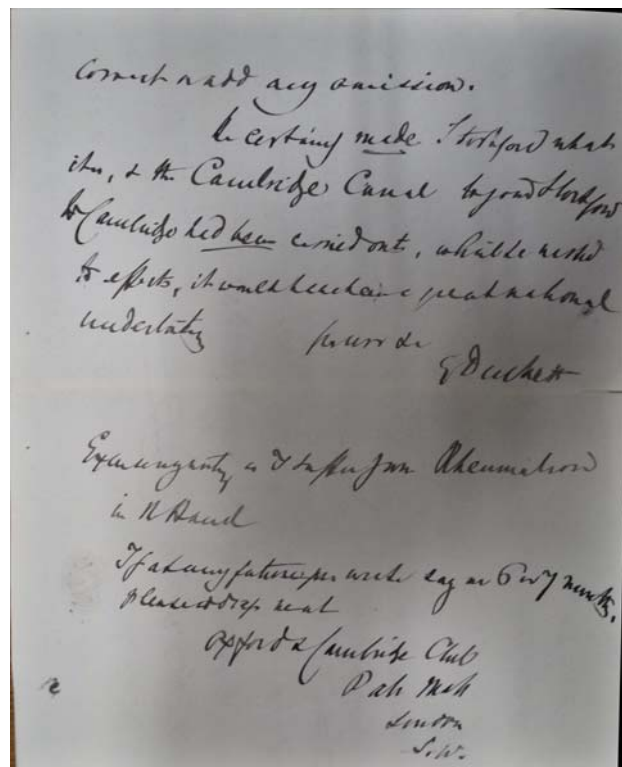 correct or add any omission.
He certainly made Stortford what
it is, & the Cambridge Canal beyond Stortford
to Cambridge had been carried out, which he wished
to effect, it would have been a great national
undertaking yours &c
G Duckett
as I suffer from Rheumatism
in R Hand
If at any future you write say in 6 or 7 months,
please address me at
Oxford & Cambridge Club
Pall Mall
London
S.W.